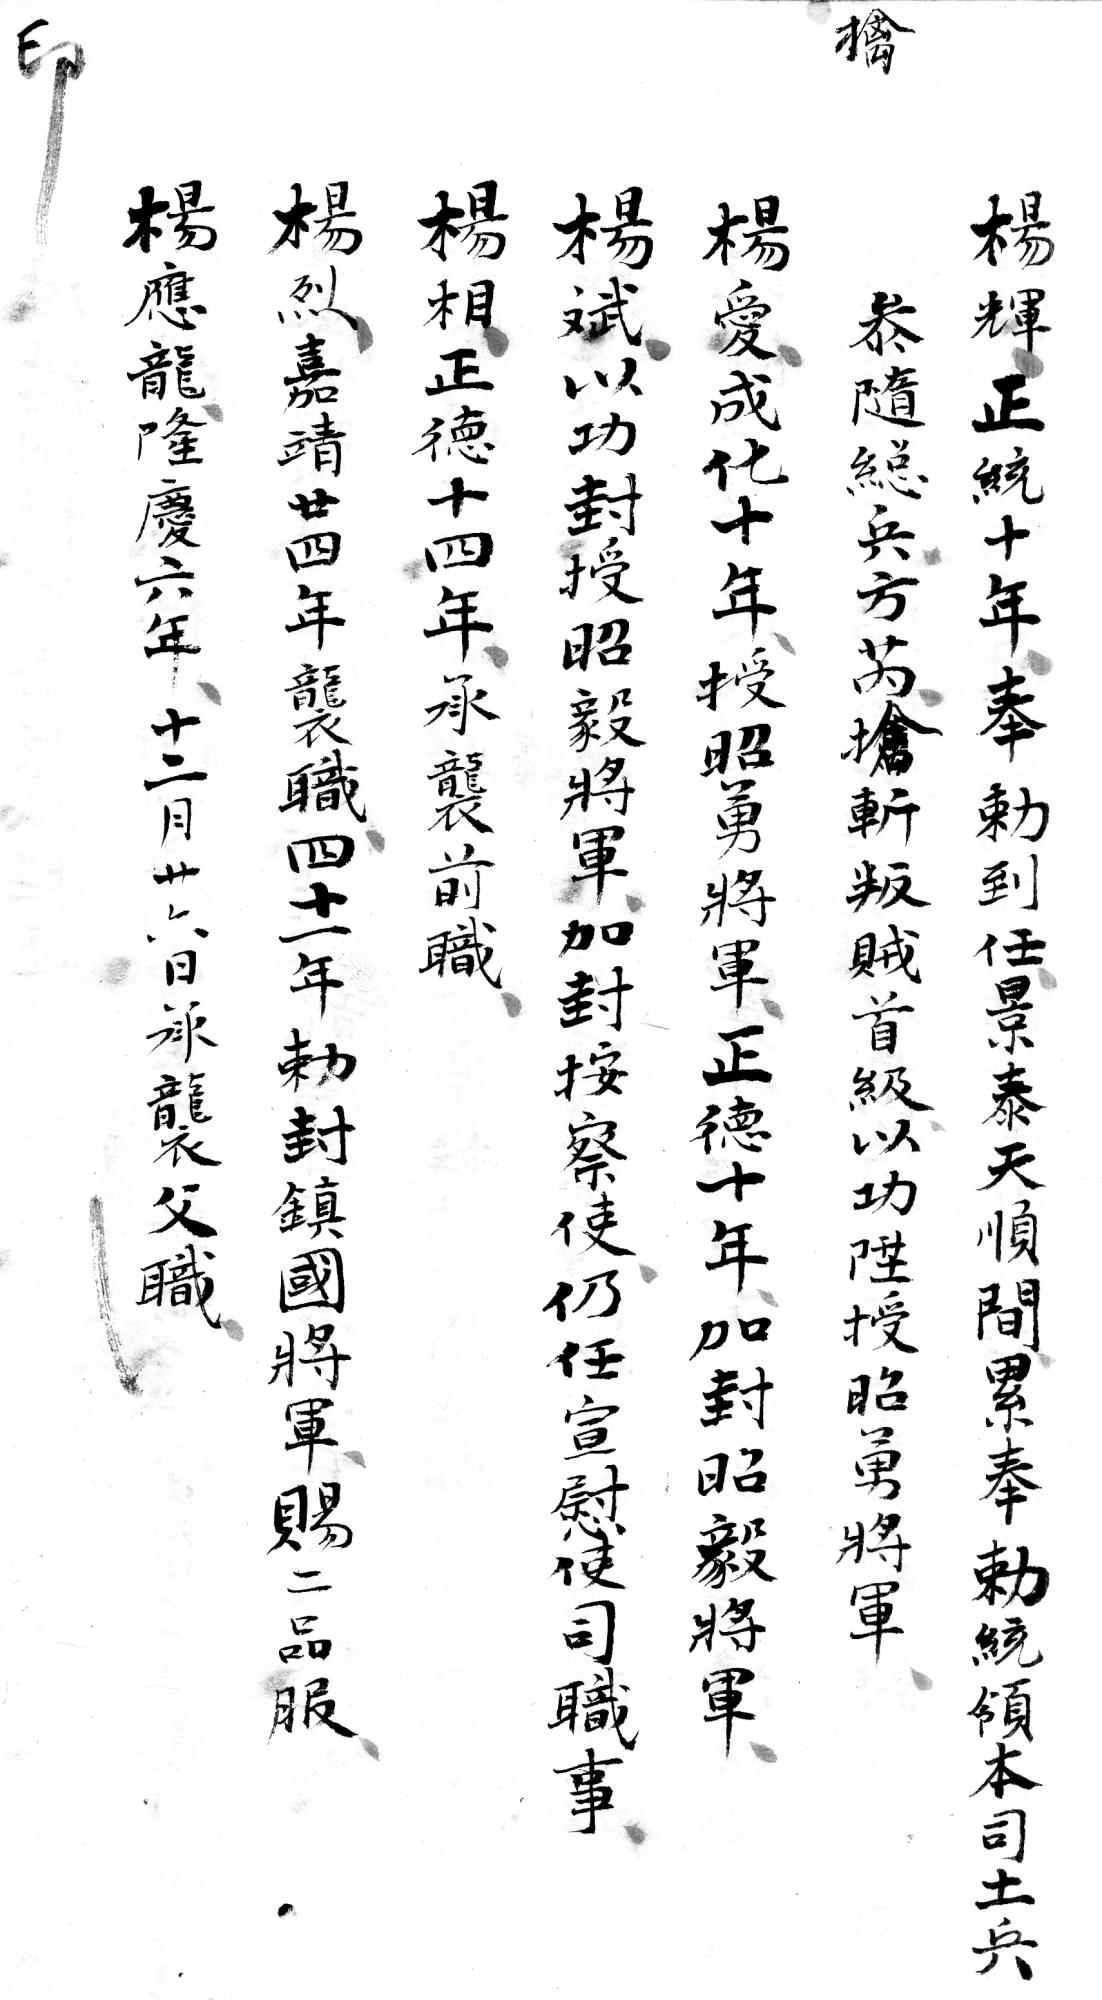 擒
楊輝正統十年奉勅到任景泰天順間累奉勅統領本司土兵
叅隨総兵方苪擒斬叛賊首級以功陞授昭勇將軍
楊愛成化十年授昭勇將軍正德十年加封昭毅將軍
楊斌以功封授昭毅將軍加封按察使仍任宣慰使司職事
楊相正德十四年承襲前職
楊烈嘉靖廿四年襲職四十一年勅封鎮國將軍賜二品服
楊應龍隆慶六年十二月廿六日承襲父職
印